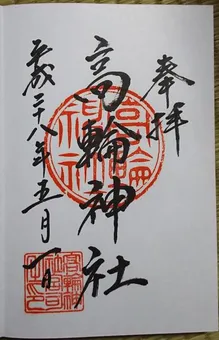 奉拝
高輪神社
平成二十八年五月一日